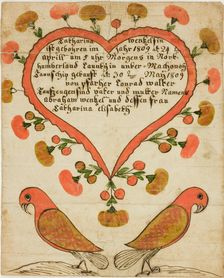 Catharina wenhelsin
ist gebohren im jahr 1809 d 24
aprill um 7 uhr Morgens in North
humberland Caunty in unter Machonoy
Taunschip getauft d 30 May 1809
von pfarher Conrad walker
Taufzeugen sind vater und mutter Namens
abraham wenhel und dessen frau
Catharina elisabeth